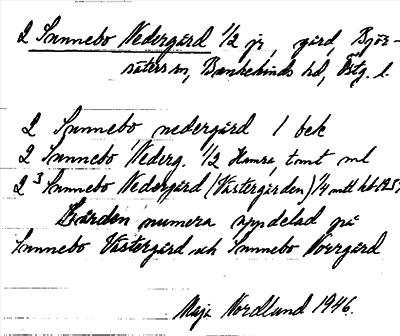 2 Sunnebo Nedergård 1/2 jr, gård, Björ-
säters sn, Bankekinds hd, Östg. l.
2 Sunnebo nedergård 1 bek
2 Sunnebo Nederg. 1/2 Hamra, tomt ml
2 3 Sunnebo Nedergård (Västergården) 1/4 mtl
Gården numera uppdelad på
Sunnebo Västergård och Sunnebo Norrgård
Maja Nordlund 1946.